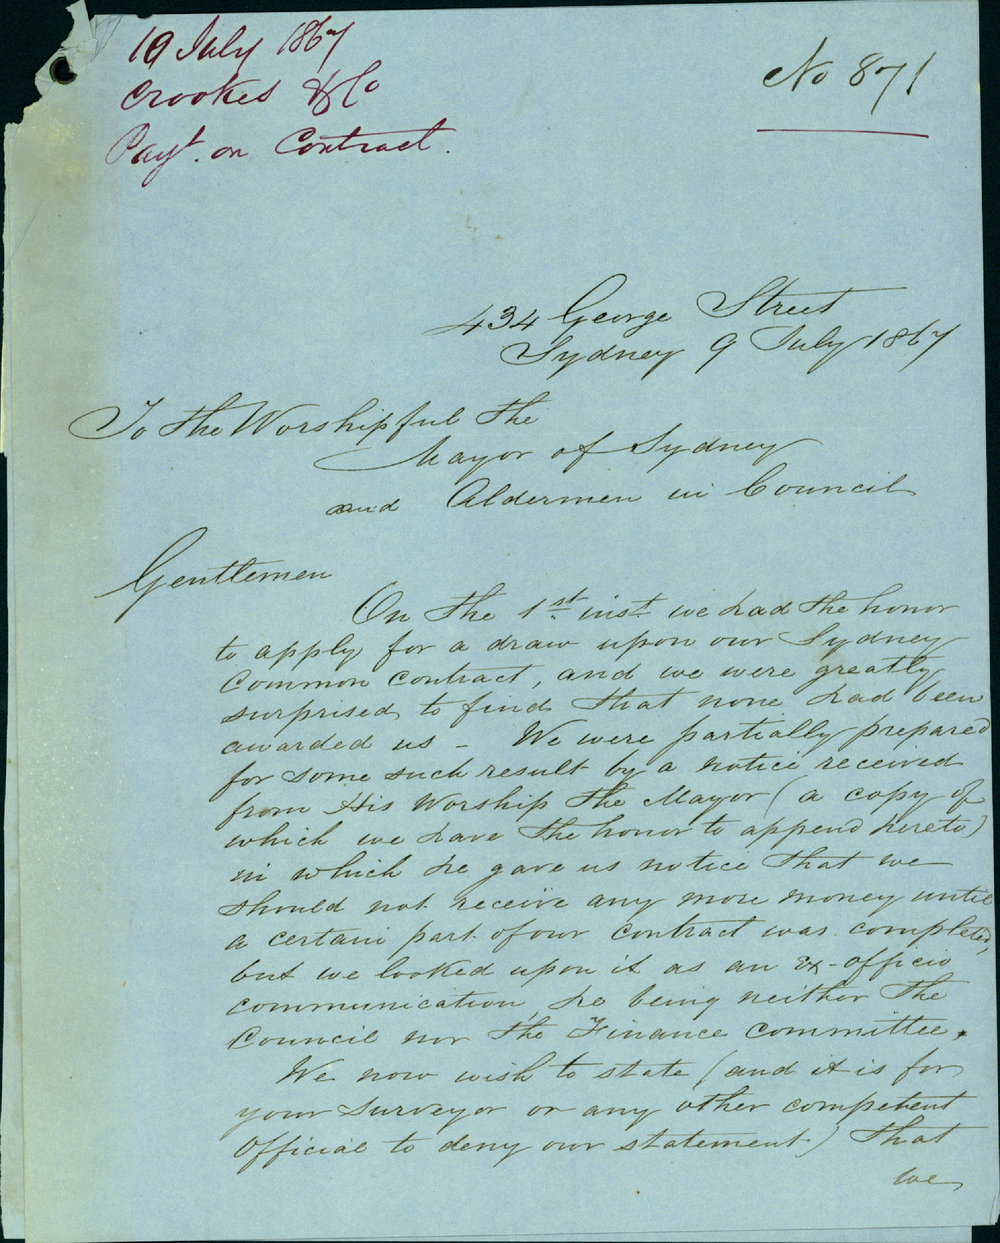 10 July 1867
Crookes & Co
Payt. on Contract.
No 871
434 George Street
Sydney 9 July 1867
To the Worshipful the
Mayor of Sydney
and Aldermen in Council
Gentlemen
On the 1st. inst. we had the honor
to apply for a draw upon our Sydney
Common Contract, and we were greatly
surprised to find that none had been
awarded us - We were partially prepared
for some such result by a notice received
from His Worship the Mayor (a copy of
which we have the honor to append hereto)
in which he gave us notice that we
should not receive any more money until
a certain part of our contract was completed,
but we looked upon it as an Ex-officio
communication, he being neither the
Council nor the Finance Committee.
We now wish to state (and it is for
your surveyor or any other competent
Official to deny our statement) that
we